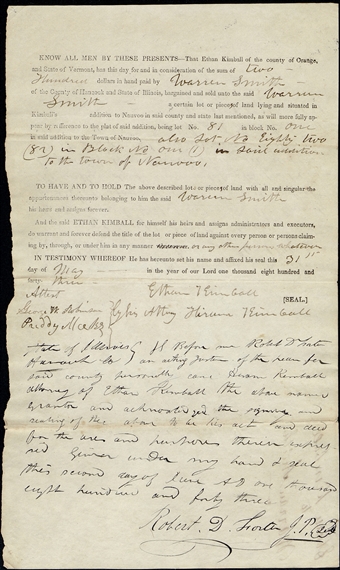 KNOW ALL MEN BY THESE PRESENTS—That Ethan Kimball of the county of Orange,
and State of Vermont, has this day for and in consideration of the sum of two
Hundred dollars in hand paid by Warren Smith
of the County of Hancock and State of Illinois, bargained and sold unto the said Warren
Smith a certain lot or pieces of land lying and situated in
Kimball's addition to Nauvoo in said county and state last mentioned, as will more fully ap-
pear by reference to the plat of said addition, being lot No. 81 in block No. one
in said addition to the Town of Nauvoo, also Lot No Eighty two
(82) in Block No one (1) in said addition
to the town of Nauvoo,
TO HAVE AND TO HOLD The above described lots or pieces of land with all and singular the
appurtenances thereunto belonging to him the said Warren Smith
his heirs and assigns forever.
And the said ETHAN KIMBALL for himself his heirs and assigns administrators and executors,
do warrant and forever defend the title of the lot or piece of land against every person or persons claim-
ing by, through, or under him in any manner or any other person whatever
IN TESTIMONY WHEREOF He has hereunto set his name and affixed his seal this 31st
day of May in the year of our Lord one thousand eight hundred and
forty three
Attest
Ethan Kimball (SEAL.)
by his Attoy Hiram Kimball
State of Illinois } Before me Robert D
an acting Justice of the peace for
said county personally came Hiram Kimball
attorney of Ethan Kimball the above named
grantor and acknowledged the signing and
sealing of the above to be his act and deed
for the uses and purposes therein expres-
sed Given under my hand & seal
this second day of June AD one thousand
eight hundred and forty three
Robert D. Foster J.P.